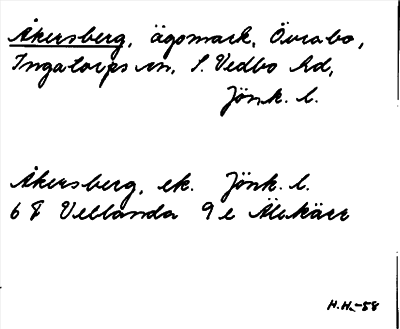 Åkersberg, ägomark, Övrabo,
Ingatorps sn, S. Vedbo hd,
Jönk. l.
Åkersberg, ek. Jönk. l.
6 F Vetlanda 9 e Älvkärr
H.H.-58